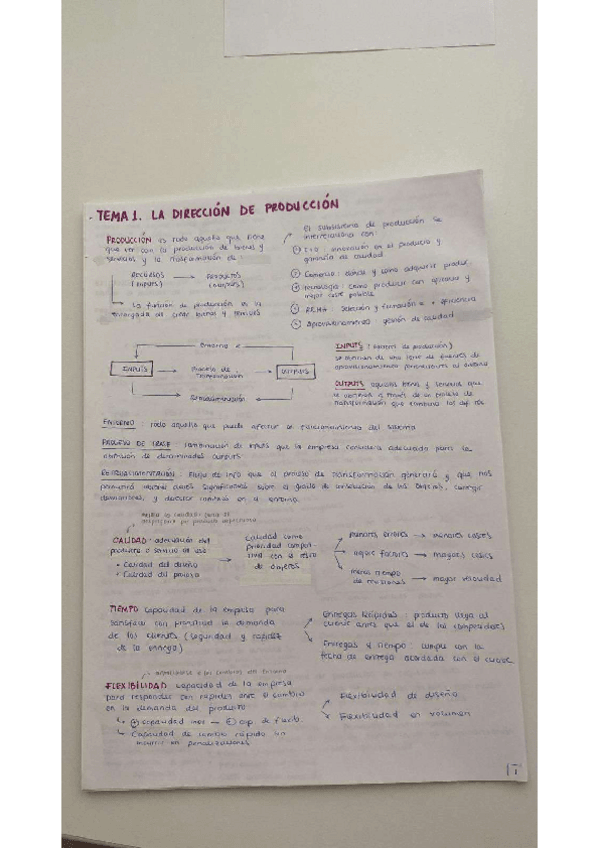 - TEMA 1. LA DIRECCIÓN DE PRODUCCIÓN
PRODUCCIÓN es todo aquello que tiene
que ver con la producción de bienes y
servicios y la transformación de:
RECURSOS → PRODUCTOS
(INPUTS) (OUTPUTS)
La función de producción es la
encargada de crear bienes y servicios
El subsistema de producción se
interrelaciona con:
innovación en el producto y
garantía de calidad
Comercial: dónde y cómo adquirir produc.
Tecnología: cómo producir con eficacia y
mejor coste posible
RRHH: selección y formación + eficiencia
Aprovisionamiento: gestión de calidad
Entorno
INPUTS → Proceso de → OUTPUTS
Transformación
Retroalimentación
INPUTS: (factores de producción)
se obtienen de una serie de fuentes de
aprovisionamiento
OUTPUTS: aquellos bienes y servicios que
se obtienen a través de un proceso de
transformación que combina los
ENTORNO: todo aquello que puede afectar en funcionamiento del sistema
PROCESO DE TRANSF: combinación de inputs que la empresa considera adecuada para la
obtención de determinados outputs.
RETROALIMENTACIÓN: flujo de info que el proceso de transformación generará y que nos
permitirá obtener datos significativos sobre el grado de consecución de los objetivos, corregir
desviaciones, y detectar cambios en el entorno.
CALIDAD: adecuación del
producto o servicio de uso
• Calidad del diseño
• Calidad del proceso
Calidad como
prioridad competi-
tiva con el resto
de objetivos
menores errores → menores costes
→ mayores costes
menos tiempo → mayor velocidad
TIEMPO: capacidad de la empresa para
satisfacer con prontitud la demanda
de los clientes (seguridad y rapidez
de la entrega)
Entregas rápidas: producto llega al
cliente antes que el de los competidores
Entregas a tiempo: cumplir con la
fecha de entrega acordada con el cliente
FLEXIBILIDAD: capacidad de la empresa
para responder con rapidez ante el cambio
en la demanda del producto
capacidad cap. de flexib.
Capacidad de cambio rápido sin
incurrir en penalizaciones
Flexibilidad de diseño
Flexibilidad en volumen
1